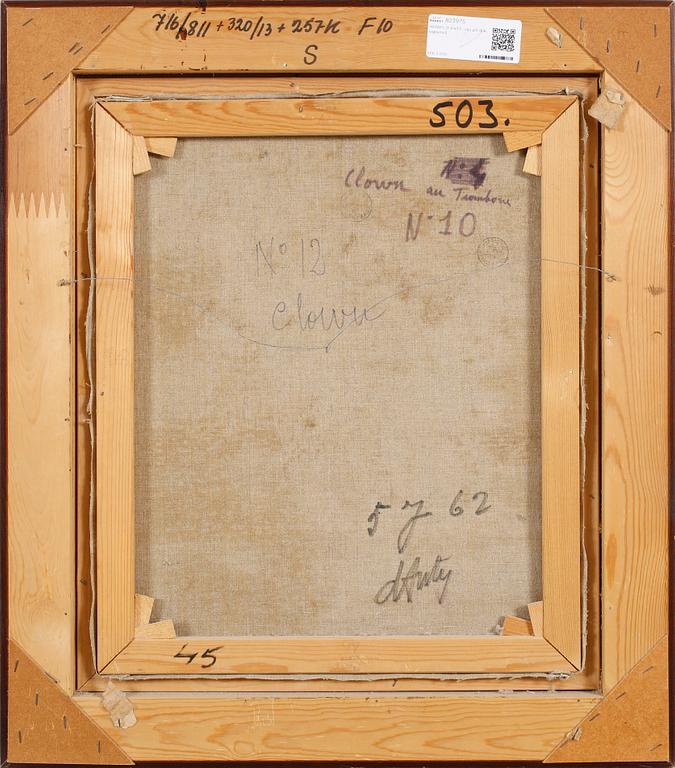 716/811 + 320/13 + 257K F10
S
823975
503.
N°4
Clown au Trombone
N°10
N° 12
Clown
5 7 62
d'Anty
45